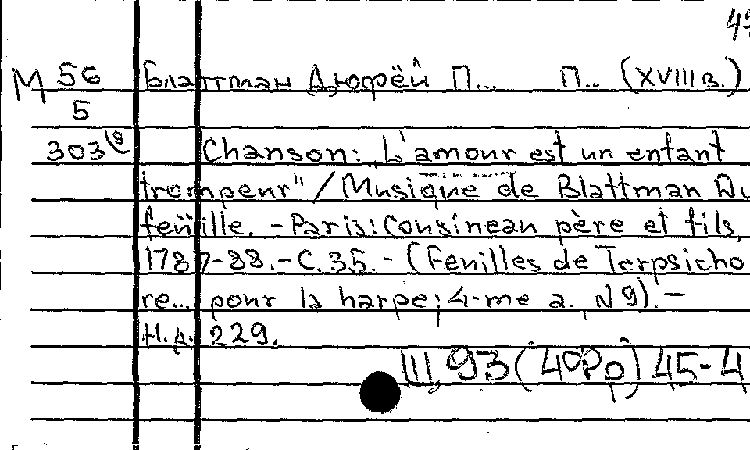 М 56 Блаттман Дюфёй П... П.. (XVIII в.)
5
303(9 Chanson: „L'amour est un enfant
trompeur" / Musique de Blattman Du
feuille. - Paris: Cousineau père et fils,
1787-88. - С. 35. - (Feuilles de Terpsicho
re... pour la harpe; 4-me a. N 9). -
Н.д. 229.
III, 93 (40Рр) 45-4